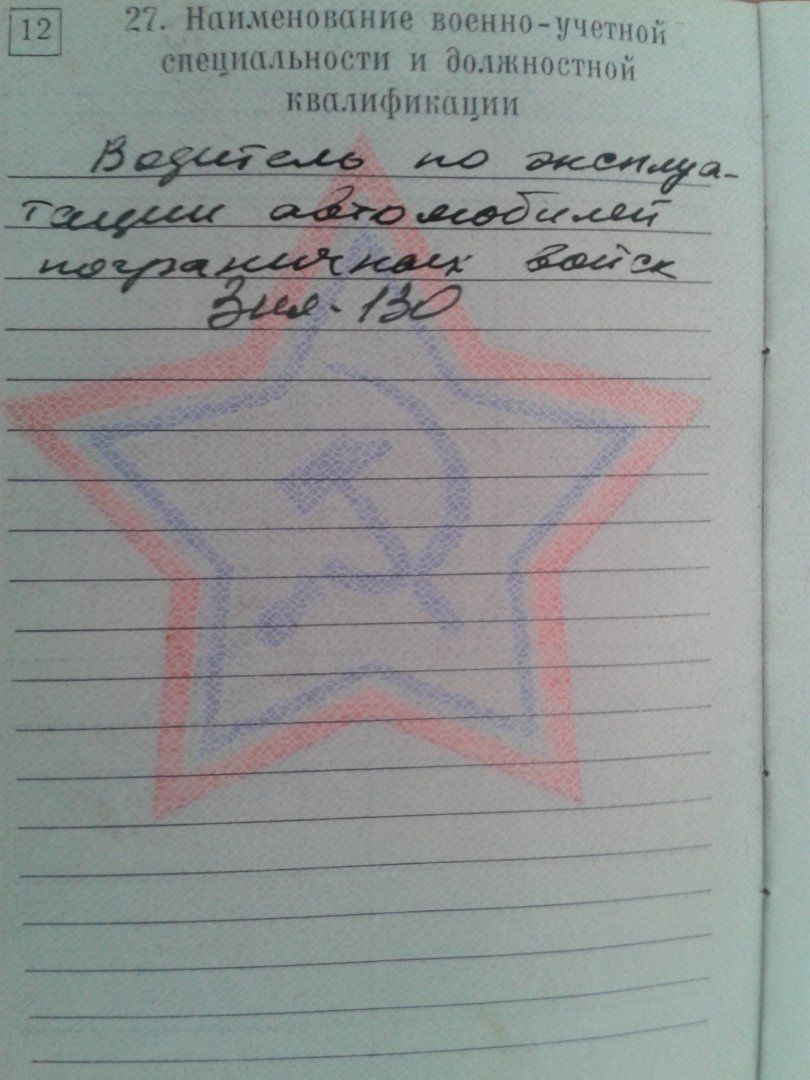 12
27. Наименование военно-учетной
специальности и должностной
квалификации
Водитель по эксплуа-
тации автомобилей
пограничных войск
Зил-130